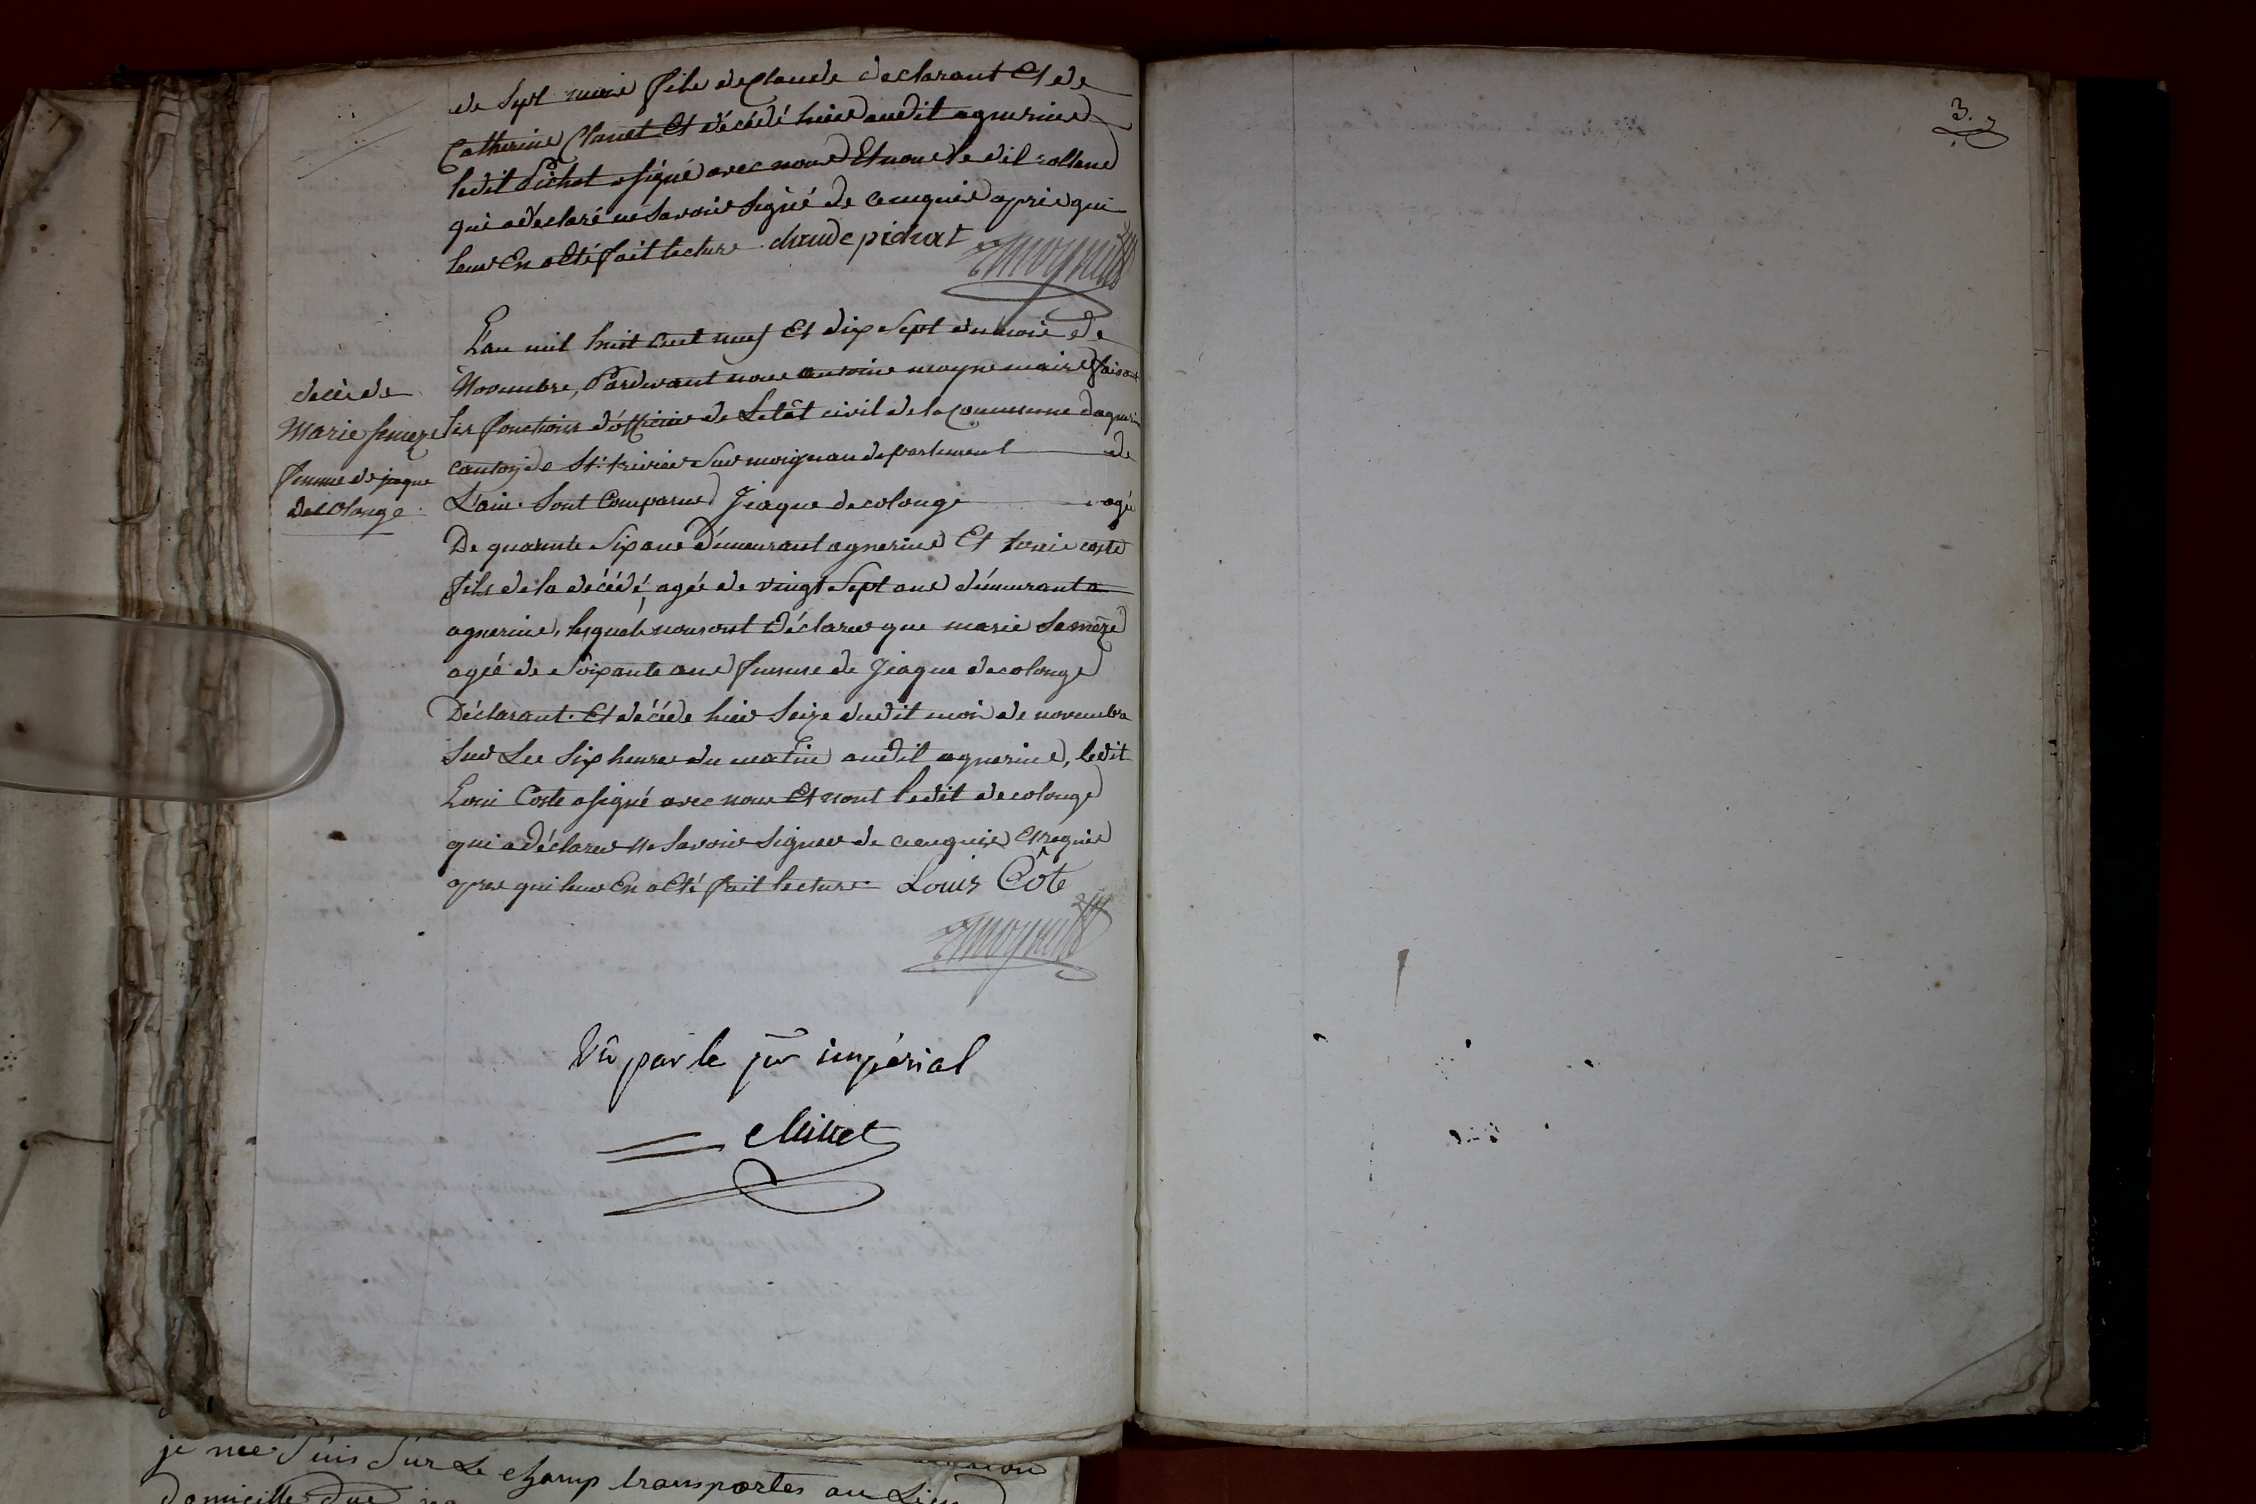 de sept mois fils de Claude declarant Et de
Catherine Clanet Et décédé hier audit agnerins
ledit Pichat a signé avec nous Et non le dit rolland
qui a declaré ne savoir signé de ce enquis apris qui
leur En a Eté fait lecture. claude pichat
L'an mil huit cent neuf Et dix sept du mois de
Novembre, Pardevant nous antoine moyne maire faisant
les fonctions d'officier de Letât civil de la Commune dagnerins
canton de St. trivier sur moignan departement de
L'ain. Sont Comparus Jiaque decolonge agé
De quarante Six ans démeurant agnerins Et louis coste
fils de la décédé, agée de vingt Sept ans démeurant a
agnerins, lesquels nous ont Déclarer que marie
agée de Soixante ans femme de Jiaque decolonge
Déclarant. Et décéde hier Seize dudit mois de novembre
Sur Les Six heures du matin audit agnerins, ledit
Loui Coste a signé avec nous Et nont ledit decolonge
qui a Déclarer ne Savoir Signer de ce enquis Et requis
apres qui leur En a Eté fait lecture. Louis Côte
décès de
Marie
femme de jiaque
Decolonge.
Vû par le pr impérial
3.
je me suis sur Le champ transportés au Lieu
domicille